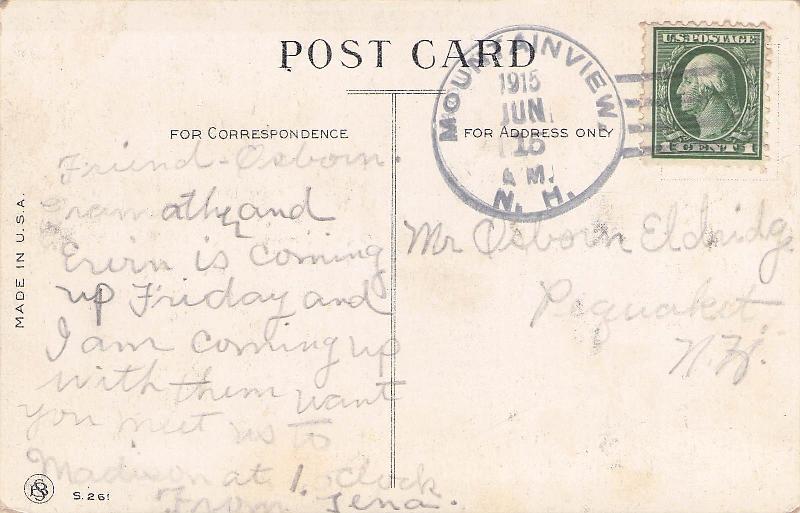 POST CARD
FOR CORRESPONDENCE
FOR ADDRESS ONLY
MADE IN U.S.A.
MOUNTAINVIEW,
1915
JUN
15
A M.
N. H.
U.S. POSTAGE
1 CENT 1
Friend-Osborn.
and
Ervin is coming
up Friday and
I am coming up
with them want
you meet us to
Madison at 1. oclock
From Lena.
Mr Osborn Eldridg
Pequaket
N.H.
S. 261